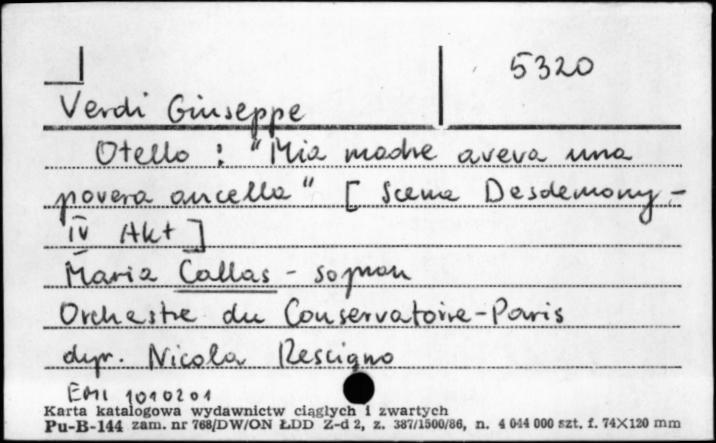 5320
Verdi Giuseppe
Otello : "Mia madre aveva una
povera ancella" [ Scena Desdemony -
IV Akt ]
Maria Callas - sopran
Orchestre du Conservatoire-Paris
dyr. Nicola Rescigno
EMI 1010201
Karta katalogowa wydawnictw ciągłych i zwartych
Pu-B-144 zam. nr 768/DW/ON ŁDD Z-d 2, z. 387/1500/86, n. 4 044 000 szt. f. 74X120 mm